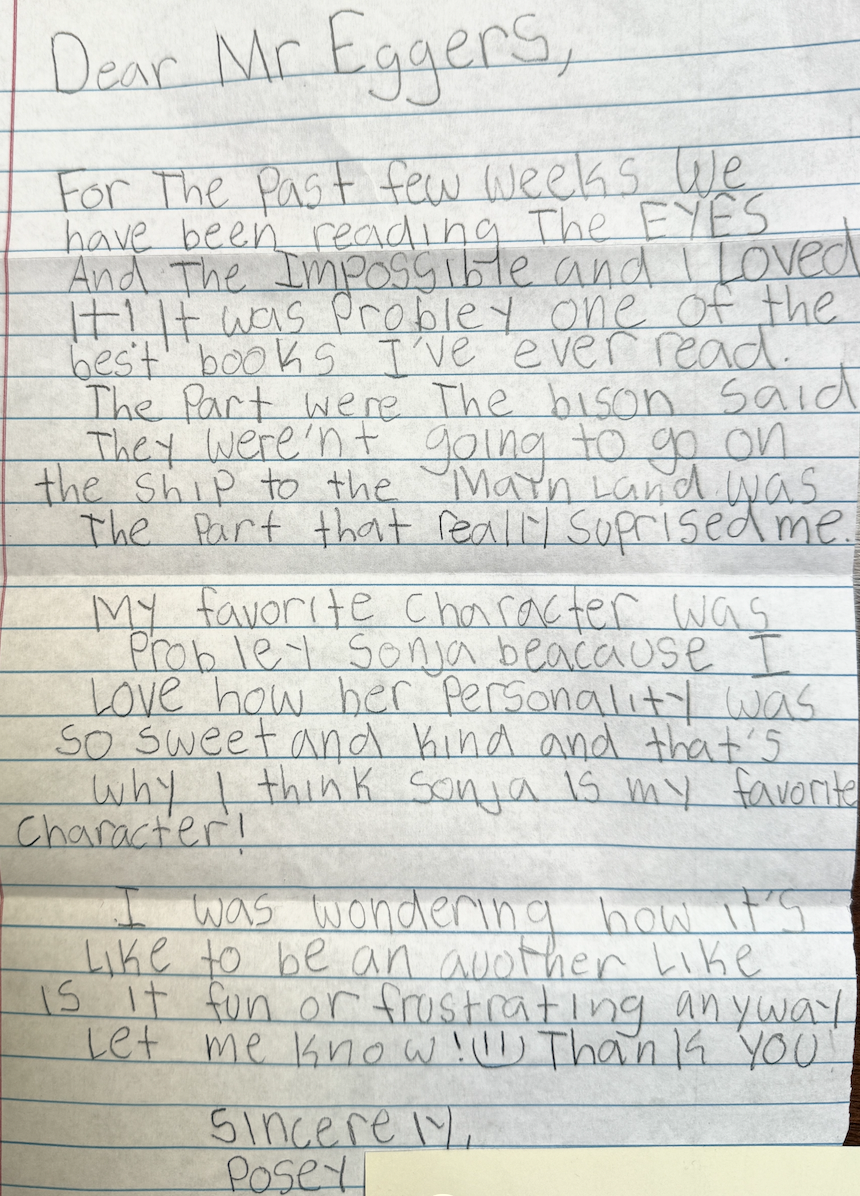 Dear Mr Eggers,
For The Past few weeks We
have been reading The EYES
And The Impossible and I Loved
It! It was Probley one of the
best books I've ever read.
The Part were The bison said
They were'nt going to go on
the ship to the Main Land was
The Part that really suprised me.
My favorite Character was
Probley Sonja beacause I
Love how her Personality was
so sweet and kind and that's
why I think Sonja is my favorite
Character!
I was wondering how it's
Like to be an auother Like
is it fun or frustrating anyway
Let me know! Thank you!
Sincerely,
Posey